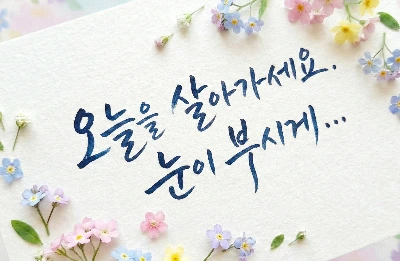 오늘을 살아가세요.
눈이 부시게...